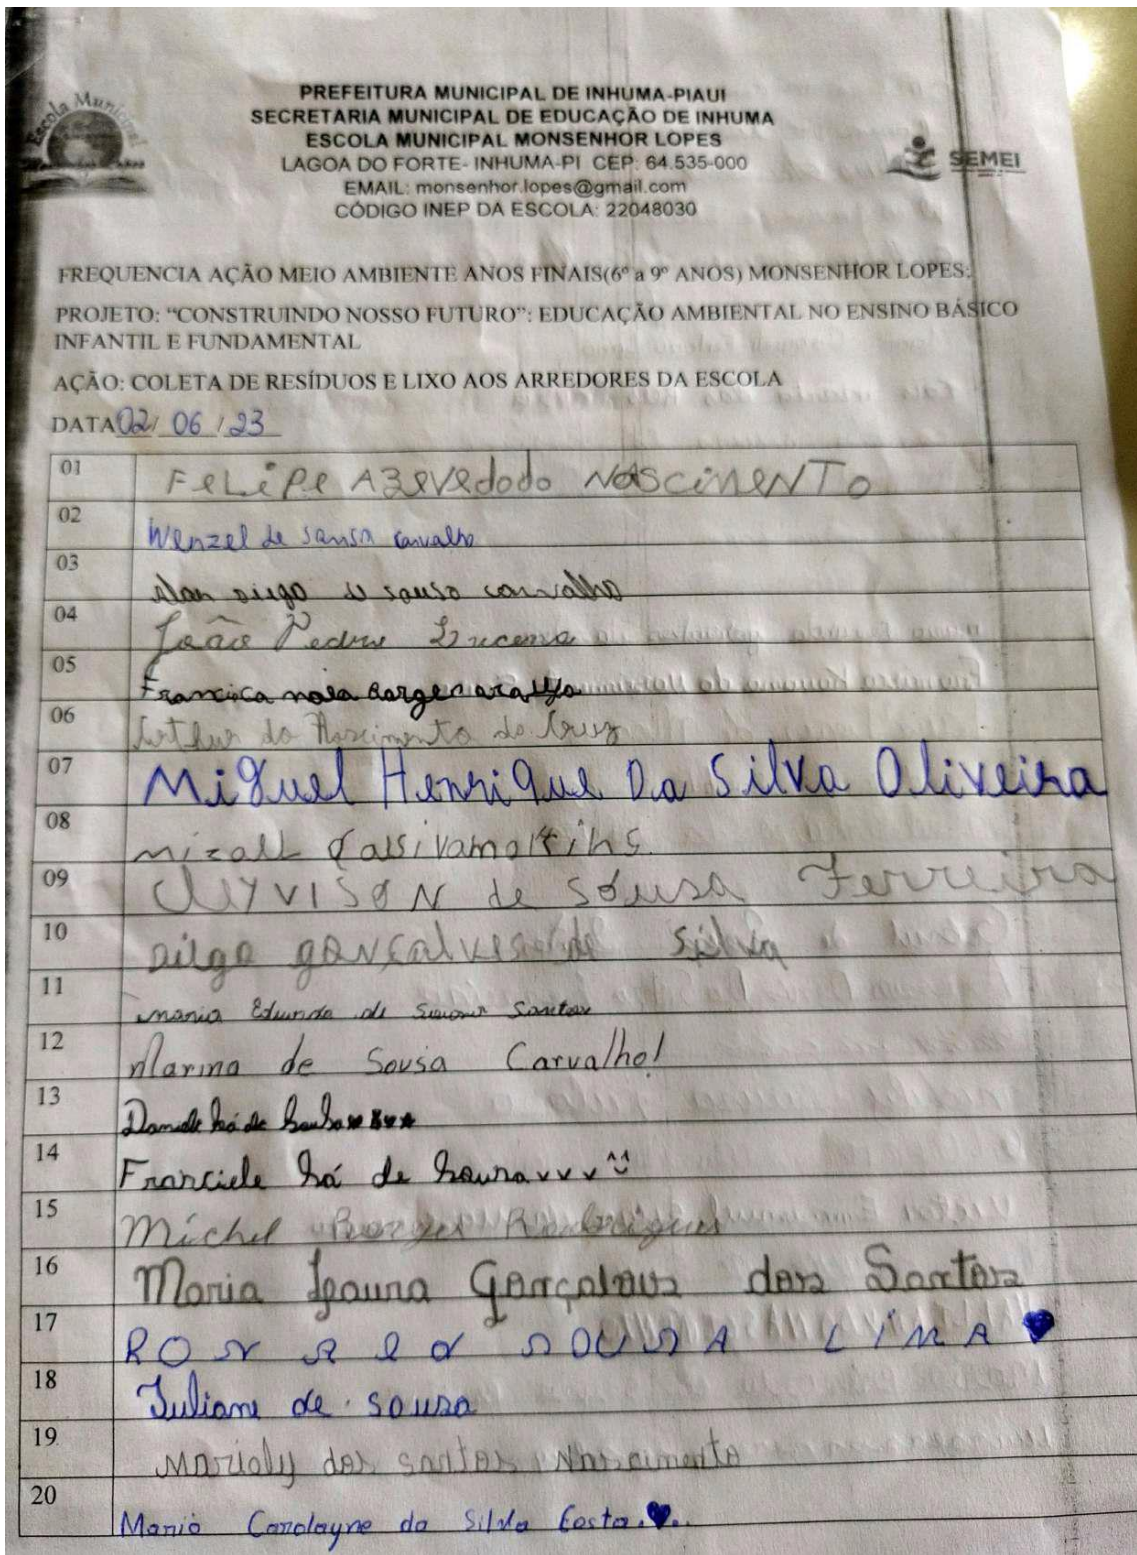 Escola Municipal
PREFEITURA MUNICIPAL DE INHUMA-PIAUI
SECRETARIA MUNICIPAL DE EDUCAÇÃO DE INHUMA
ESCOLA MUNICIPAL MONSENHOR LOPES
LAGOA DO FORTE- INHUMA-PI CEP: 64.535-000
EMAIL: monsenhor.lopes@gmail.com
CÓDIGO INEP DA ESCOLA: 22048030
SEMEI
FREQUENCIA AÇÃO MEIO AMBIENTE ANOS FINAIS(6º a 9º ANOS) MONSENHOR LOPES:
PROJETO: “CONSTRUINDO NOSSO FUTURO”: EDUCAÇÃO AMBIENTAL NO ENSINO BÁSICO
INFANTIL E FUNDAMENTAL
AÇÃO: COLETA DE RESÍDUOS E LIXO AOS ARREDORES DA ESCOLA
DATA 02/ 06 /23
01 FeLipe Azevedodo NASCiMENTO
02 Wenzel de sousa carvalho
03 Alan diego de souso carvalho
04 João Pedro Lucena
05 Francisca
06 Arthur do Nascimento da Cruz
07 Miguel Henrique Da Silva Oliveira
08
09 de sousa Ferreira
10 gonçalves de Silva
11 maria Edunda de Santos
12 Marina de Sousa Carvalho!
13
14 Franciele Sá de Sousa vvv ^^
15 Michel Borges Rodrigues
16 Maria Isaura Gonçalves dos Santos
17 RONALD SOUSA LIMA
18 Juliane de sousa
19 Marialy dos santos Nascimento
20 Maria Carolayne da Silva Costa